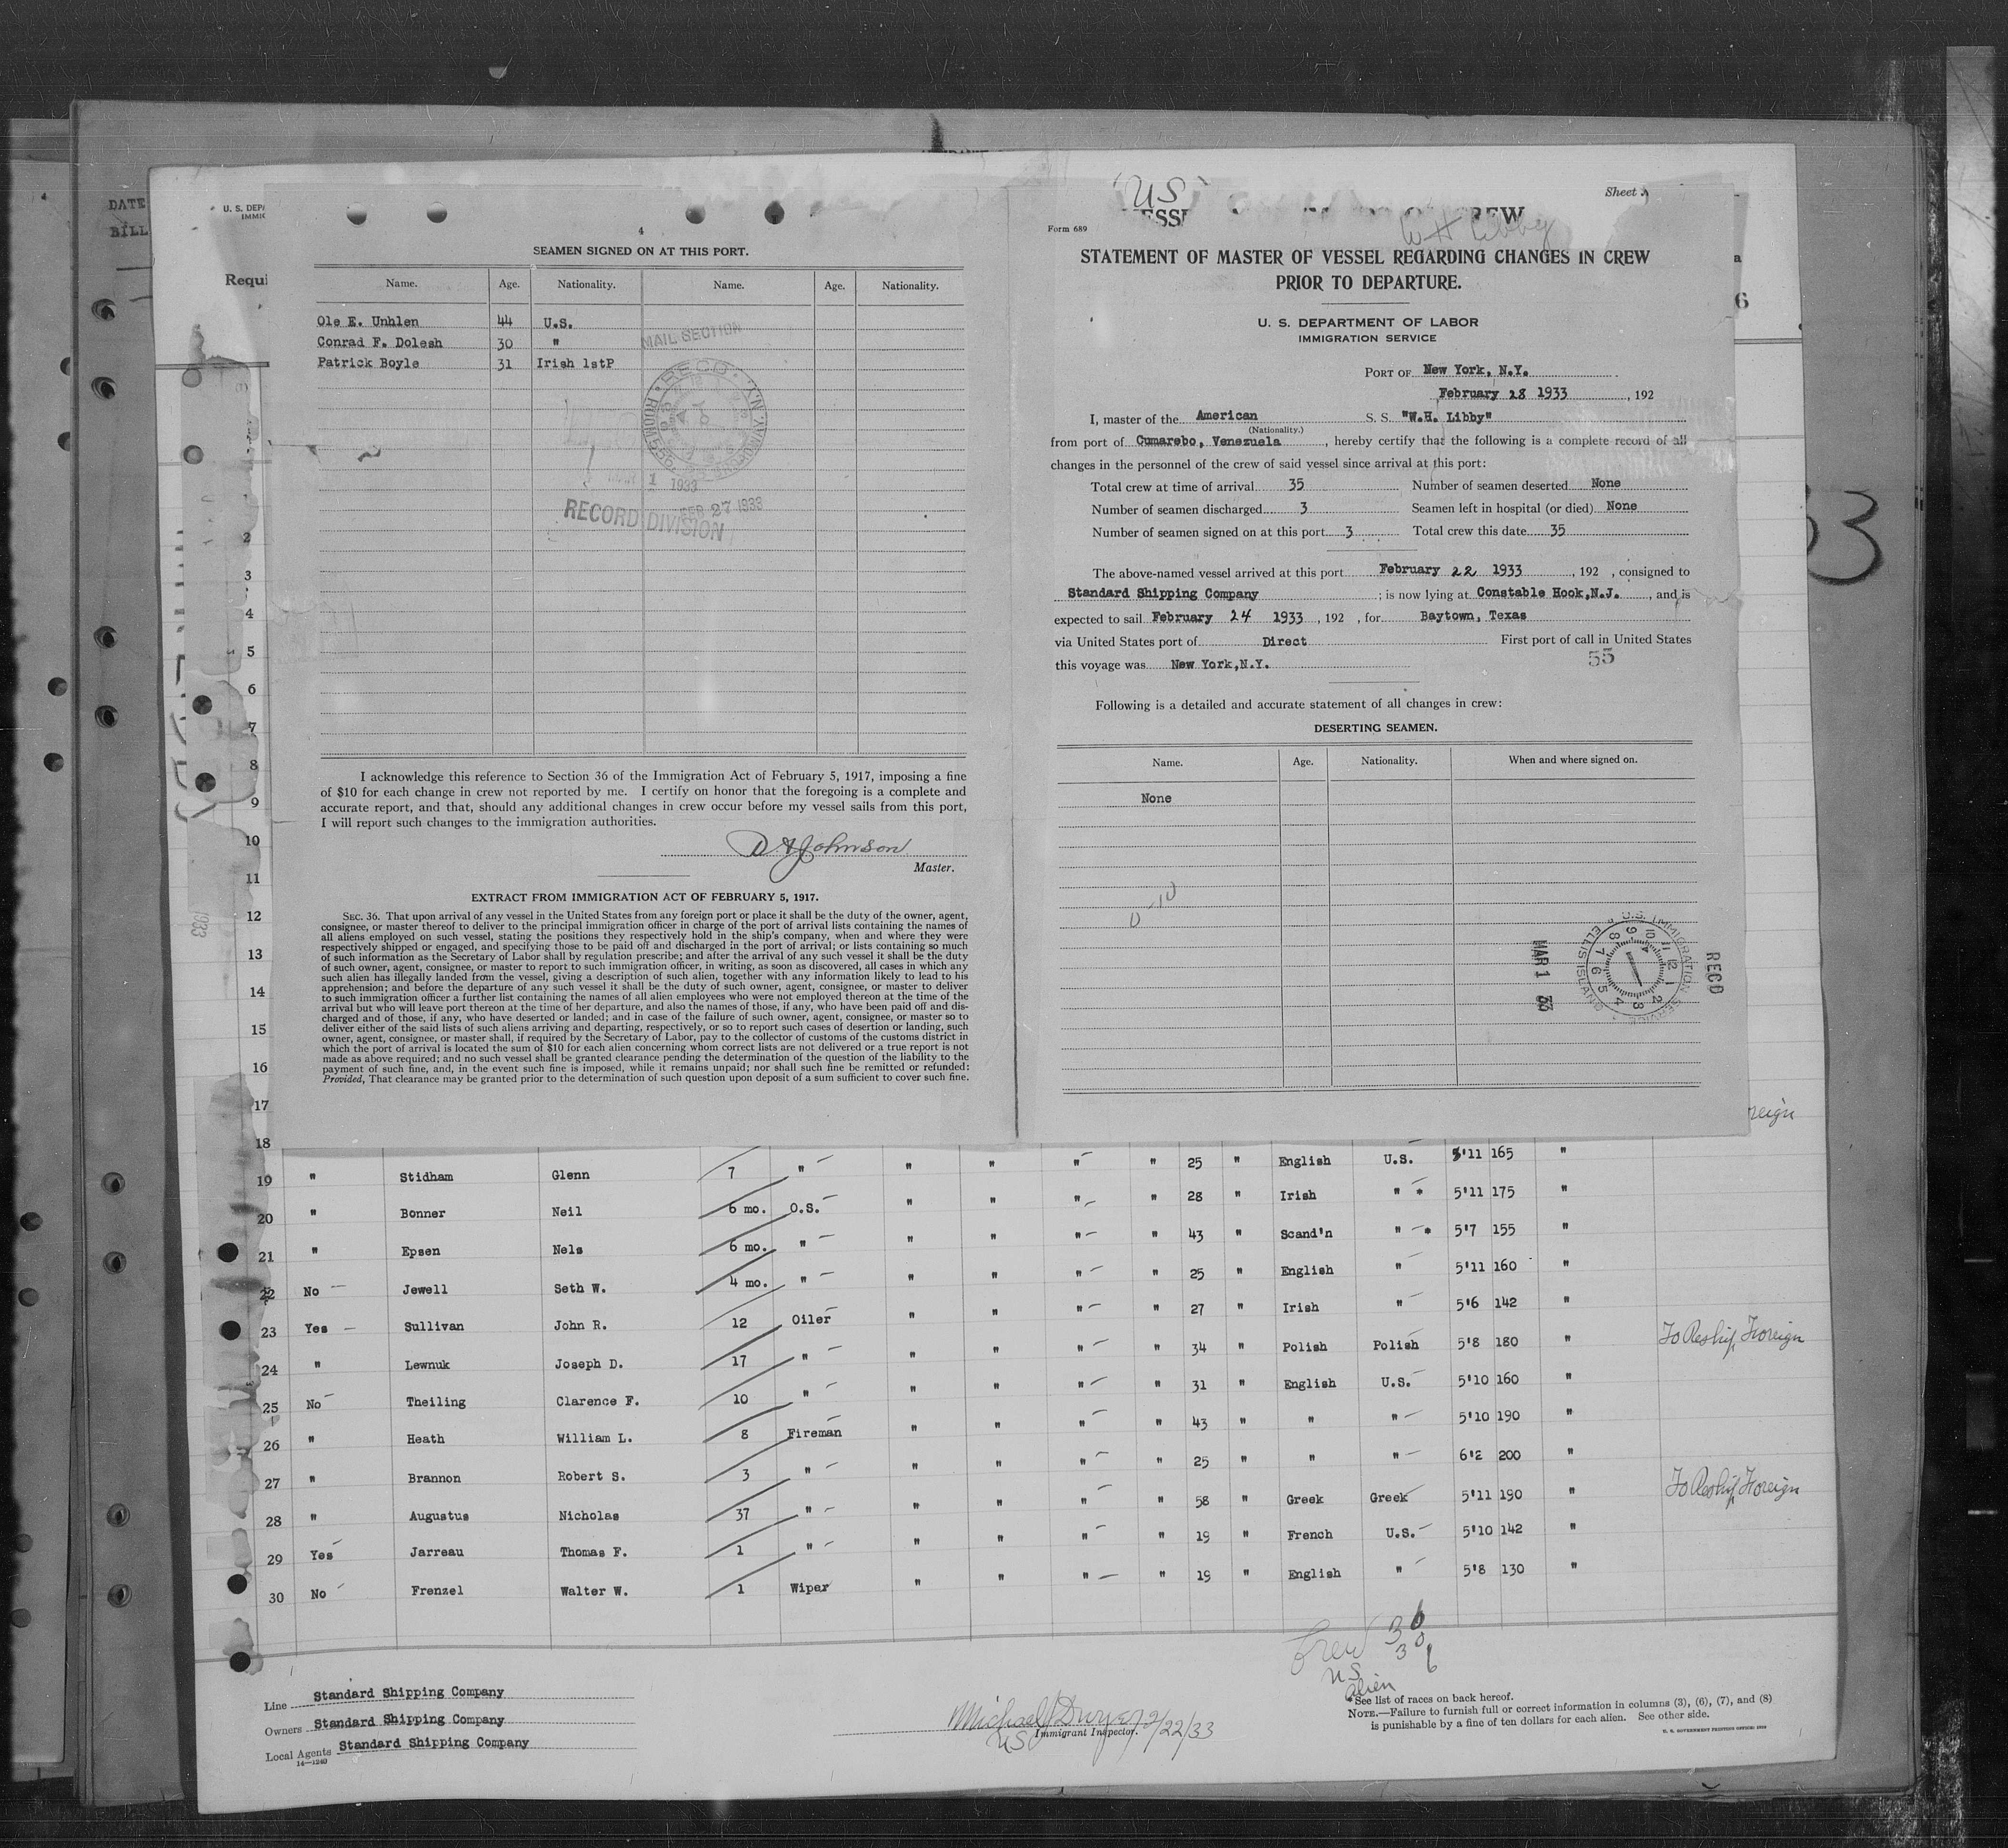 DATE
BILL
U. S. DEPA
IMMIG
Requi
4
SEAMEN SIGNED ON AT THIS PORT.
Name. Age. Nationality. Name. Age. Nationality.
Ole E. Unhlen 44 U.S.
Conrad F. Dolesh 30 "
Patrick Boyle 31 Irish 1stP
MAIL SECTION
REC'D
1 1933
FEB 27 1933
RECORD DIVISION
I acknowledge this reference to Section 36 of the Immigration Act of February 5, 1917, imposing a fine
of $10 for each change in crew not reported by me. I certify on honor that the foregoing is a complete and
accurate report, and that, should any additional changes in crew occur before my vessel sails from this port,
I will report such changes to the immigration authorities.
Johnson
Master.
EXTRACT FROM IMMIGRATION ACT OF FEBRUARY 5, 1917.
SEC. 36. That upon arrival of any vessel in the United States from any foreign port or place it shall be the duty of the owner, agent,
consignee, or master thereof to deliver to the principal immigration officer in charge of the port of arrival lists containing the names of
all aliens employed on such vessel, stating the positions they respectively hold in the ship's company, when and where they were
respectively shipped or engaged, and specifying those to be paid off and discharged in the port of arrival; or lists containing so much
of such information as the Secretary of Labor shall by regulation prescribe; and after the arrival of any such vessel it shall be the duty
of such owner, agent, consignee, or master to report to such immigration officer, in writing, as soon as discovered, all cases in which any
such alien has illegally landed from the vessel, giving a description of such alien, together with any information likely to lead to his
apprehension; and before the departure of any such vessel it shall be the duty of such owner, agent, consignee, or master to deliver
to such immigration officer a further list containing the names of all alien employees who were not employed thereon at the time of the
arrival but who will leave port thereon at the time of her departure, and also the names of those, if any, who have been paid off and dis-
charged and of those, if any, who have deserted or landed; and in case of the failure of such owner, agent, consignee, or master so to
deliver either of the said lists of such aliens arriving and departing, respectively, or so to report such cases of desertion or landing, such
owner, agent, consignee, or master shall, if required by the Secretary of Labor, pay to the collector of customs of the customs district in
which the port of arrival is located the sum of $10 for each alien concerning whom correct lists are not delivered or a true report is not
made as above required; and no such vessel shall be granted clearance pending the determination of the question of the liability to the
payment of such fine, and, in the event such fine is imposed, while it remains unpaid; nor shall such fine be remitted or refunded:
Provided, That clearance may be granted prior to the determination of such question upon deposit of a sum sufficient to cover such fine.
US
Sheet
Form 689
W H Libby
STATEMENT OF MASTER OF VESSEL REGARDING CHANGES IN CREW
PRIOR TO DEPARTURE.
U. S. DEPARTMENT OF LABOR
IMMIGRATION SERVICE
PORT OF New York, N.Y.
February 28 1933, 192
I, master of the American S. S. "W.H. Libby"
(Nationality.)
from port of Cumarebo, Venezuela, hereby certify that the following is a complete record of all
changes in the personnel of the crew of said vessel since arrival at this port:
Total crew at time of arrival 35 Number of seamen deserted None
Number of seamen discharged 3 Seamen left in hospital (or died) None
Number of seamen signed on at this port 3 Total crew this date 35
The above-named vessel arrived at this port February 22 1933, 192 , consigned to
Standard Shipping Company; is now lying at Constable Hook,N.J., and is
expected to sail February 24 1933, 192 , for Baytown, Texas
via United States port of Direct First port of call in United States
this voyage was New York,N.Y.
Following is a detailed and accurate statement of all changes in crew:
DESERTING SEAMEN.
Name. Age. Nationality. When and where signed on.
None
U.S. IMMIGRATION SERVICE
ELLIS ISLAND
MAR 1 33
REC'D
2
3
4
5
6
7
8
9
10
11
12
13
14
15
16
17
18
19 " Stidham Glenn 7 " " " " " 25 " English U.S. 5'11 165 "
20 " Bonner Neil 6 mo. O.S. " " " " 28 " Irish " * 5'11 175 "
21 " Epsen Nels 6 mo. " " " " " 43 " Scand'n " * 5'7 155 "
22 No Jewell Seth W. 4 mo. " " " " " 25 " English " 5'11 160 "
23 Yes Sullivan John R. 12 Oiler " " " " 27 " Irish " 5'6 142 "
24 " Lewnuk Joseph D. 17 " " " " " 34 " Polish Polish 5'8 180 " To Reship Foreign
25 No Theiling Clarence F. 10 " " " " " 31 " English U.S. 5'10 160 "
26 " Heath William L. 8 Fireman " " " " 43 " " " 5'10 190 "
27 " Brannon Robert S. 3 " " " " " 25 " " " 6'2 200 "
28 " Augustus Nicholas 37 " " " " " 58 " Greek Greek 5'11 190 " To Reship Foreign
29 Yes Jarreau Thomas F. 1 " " " " " 19 " French U.S. 5'10 142 "
30 No Frenzel Walter W. 1 Wiper " " " " 19 " English " 5'8 130 "
Crew 36
US 30
alien 6
Line Standard Shipping Company
Owners Standard Shipping Company
Local Agents Standard Shipping Company
14—1240
Michael J Dwyer 2/22/33
Immigrant Inspector.
*See list of races on back hereof.
NOTE.—Failure to furnish full or correct information in columns (3), (6), (7), and (8)
is punishable by a fine of ten dollars for each alien. See other side.